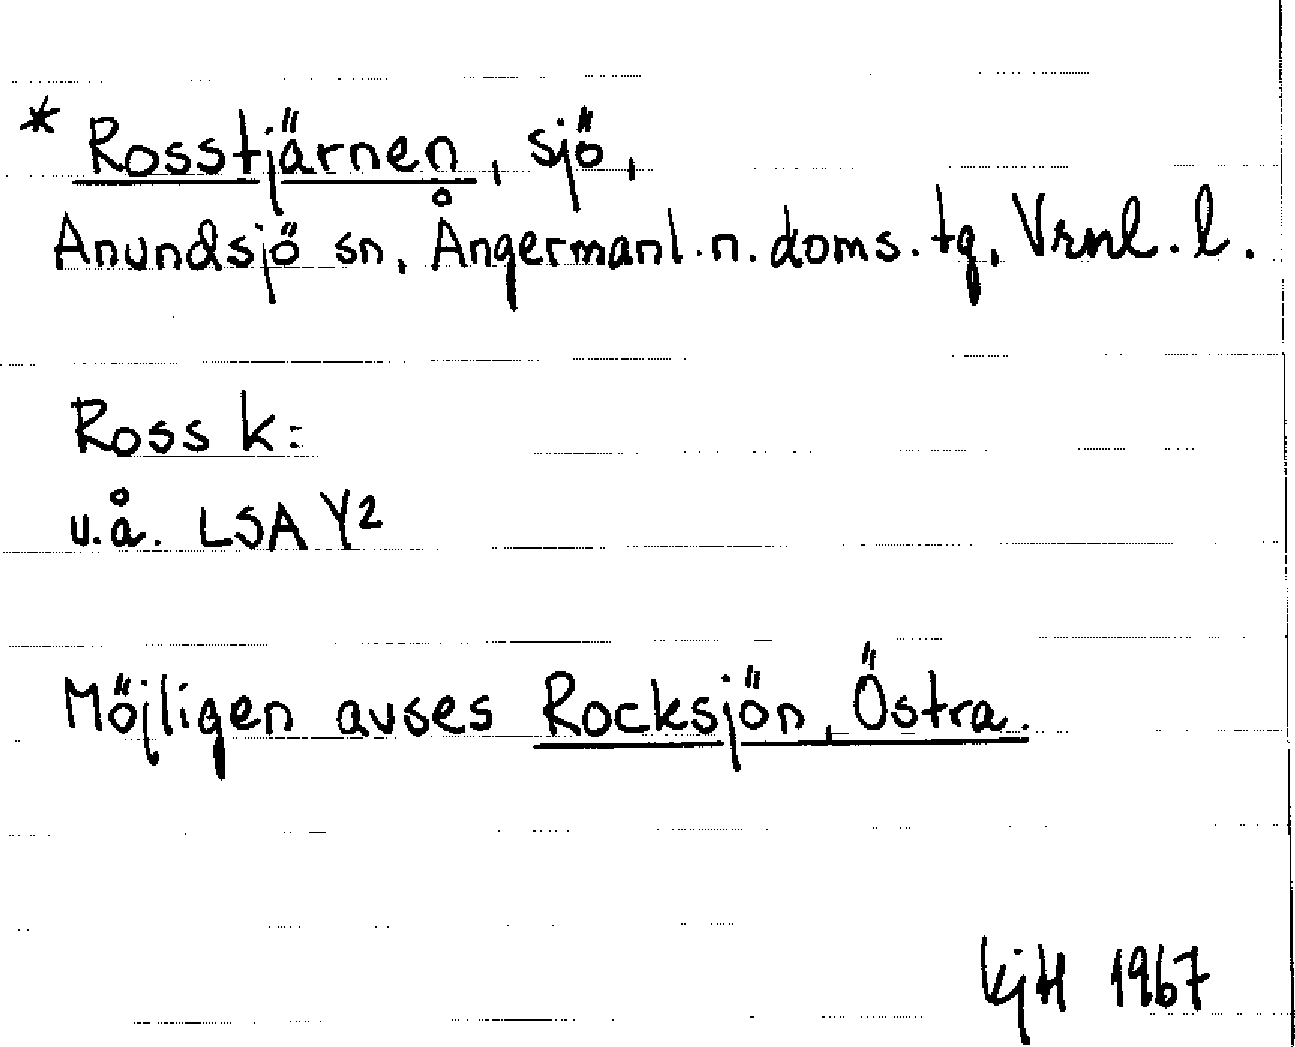 * Rosstjärnen, sjö,
Anundsjö sn, Ångermanl. n. doms. tg, Vrnl. l.
Ross k:
u.å. LSA Y2
Möjligen avses Rocksjön, Östra.
KjH 1967